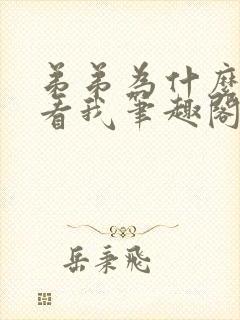 弟弟為什麼
看我筆趣閣
岳秉飛